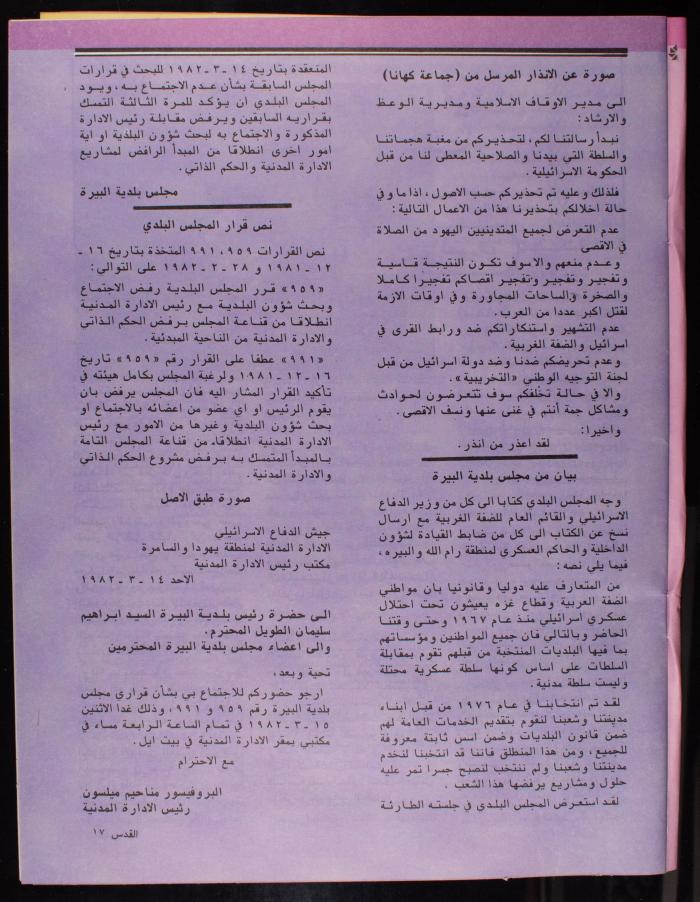 صورة عن الانذار المرسل من (جماعة كهانا)
الى مدير الاوقاف الاسلامية ومديرية الوعظ
والارشاد:
نبدأ رسالتنا لكم، لتحذيركم من مغبة هجماتنا
والسلطة التي بيدنا والصلاحية المعطى لنا من قبل
الحكومة الاسرائيلية.
فلذلك وعليه تم تحذيركم حسب الاصول، اذا ما وفي
حالة اخلالكم بتحذيرنا هذا من الاعمال التالية:
عدم التعرض لجميع المتدينيين اليهود من الصلاة
في الاقصى
وعدم منعهم والاسوف تكون النتيجة قاسية
وتفجير وتفجير وتفجير اقصاكم تفجيرا كاملا
والصخرة والساحات المجاورة وفي اوقات الازمة
لقتل اكبر عددا من العرب.
عدم التشهير واستنكاراتكم ضد ورابط القرى في
اسرائيل والضفة الغربية.
وعدم تحريضكم ضدنا وضد دولة اسرائيل من قبل
لجنة التوجيه الوطني «التخريبية».
والا في حالة تخلفكم سوف تتعرضون لحوادث
ومشاكل جمة أنتم في غنى عنها ونسف الاقصى.
واخيرا:
لقد اعذر من انذر.
بيان من مجلس بلدية البيرة
وجه المجلس البلدي كتابا الى كل من وزير الدفاع
الاسرائيلي والقائم العام للضفة الغربية مع ارسال
نسخ عن الكتاب الى كل من ضابط القيادة لشؤون
الداخلية والحاكم العسكري لمنطقة رام الله والبيره،
فيما يلي نصه:
من المتعارف عليه دوليا وقانونيا بان مواطني
الضفة العربية وقطاع غزه يعيشون تحت احتلال
عسكري اسرائيلي منذ عام ١٩٦٧ وحتى وقتنا
الحاضر وبالتالي فان جميع المواطنين ومؤسساتهم
بما فيها البلديات المنتخبة من قبلهم تقوم بمقابلة
السلطات على اساس كونها سلطة عسكرية محتلة
وليست سلطة مدنية.
لقد تم انتخابنا في عام ١٩٧٦ من قبل ابناء
مدينتنا وشعبنا لنقوم بتقديم الخدمات العامة لهم
ضمن قانون البلديات وضمن اسس ثابتة معروفة
للجميع، ومن هذا المنطلق فاننا قد انتخبنا لنخدم
مدينتنا وشعبنا ولم ننتخب لنصبح جسرا تمر عليه
حلول ومشاريع يرفضها هذا الشعب.
لقد استعرض المجلس البلدي في جلسته الطارئة
المنعقدة بتاريخ ١٤ - ٣ - ١٩٨٢ للبحث في قرارات
المجلس السابقة بشأن عدم الاجتماع به، ويود
المجلس البلدي ان يؤكد للمرة الثالثة التمسك
بقراريه السابقين ويرفض مقابلة رئيس الادارة
المذكورة والاجتماع به لبحث شؤون البلدية او اية
امور اخرى انطلاقا من المبدأ الرافض لمشاريع
الادارة المدنية والحكم الذاتي.
مجلس بلدية البيرة
نص قرار المجلس البلدي
نص القرارات ٩٥٩، ٩٩١ المتخذة بتاريخ ١٦ -
١٢ - ١٩٨١ و ٢٨ - ٢ - ١٩٨٢ على التوالي:
«٩٥٩» قرر المجلس البلدية رفض الاجتماع
وبحث شؤون البلدية مع رئيس الادارة المدنية
انطلاقا من قناعة المجلس برفض الحكم الذاتي
والادارة المدنية من الناحية المبدئية.
«٩٩١» عطفا على القرار رقم «٩٥٩» تاريخ
١٦ - ١٢ - ١٩٨١ ولرغبة المجلس بكامل هيئته في
تأكيد القرار المشار اليه فان المجلس يرفض بان
يقوم الرئيس او اي عضو من اعضائه بالاجتماع او
بحث شؤون البلدية وغيرها من الامور مع رئيس
الادارة المدنية انطلاقاء من قناعة المجلس التامة
بالمبدأ المتمسك به برفض مشروع الحكم الذاتي
والادارة المدنية.
صورة طبق الاصل
جيش الدفاع الاسرائيلي
الادارة المدنية لمنطقة يهودا والسامرة
مكتب رئيس الادارة المدنية
الاحد ١٤ - ٣ - ١٩٨٢
الى حضرة رئيس بلدية البيرة السيد ابراهيم
سليمان الطويل المحترم.
والى اعضاء مجلس بلدية البيرة المحترمين
تحية وبعد،
ارجو حضوركم للاجتماع بي بشأن قراري مجلس
بلدية البيرة رقم ٩٥٩ و ٩٩١، وذلك غدا الاثنين
١٥ - ٣ - ١٩٨٢ في تمام الساعة الرابعة مساء في
مكتبي بمقر الادارة المدنية في بيت ايل.
مع الاحترام
البروفيسور مناحيم ميلسون
رئيس الادارة المدنية
القدس ١٧